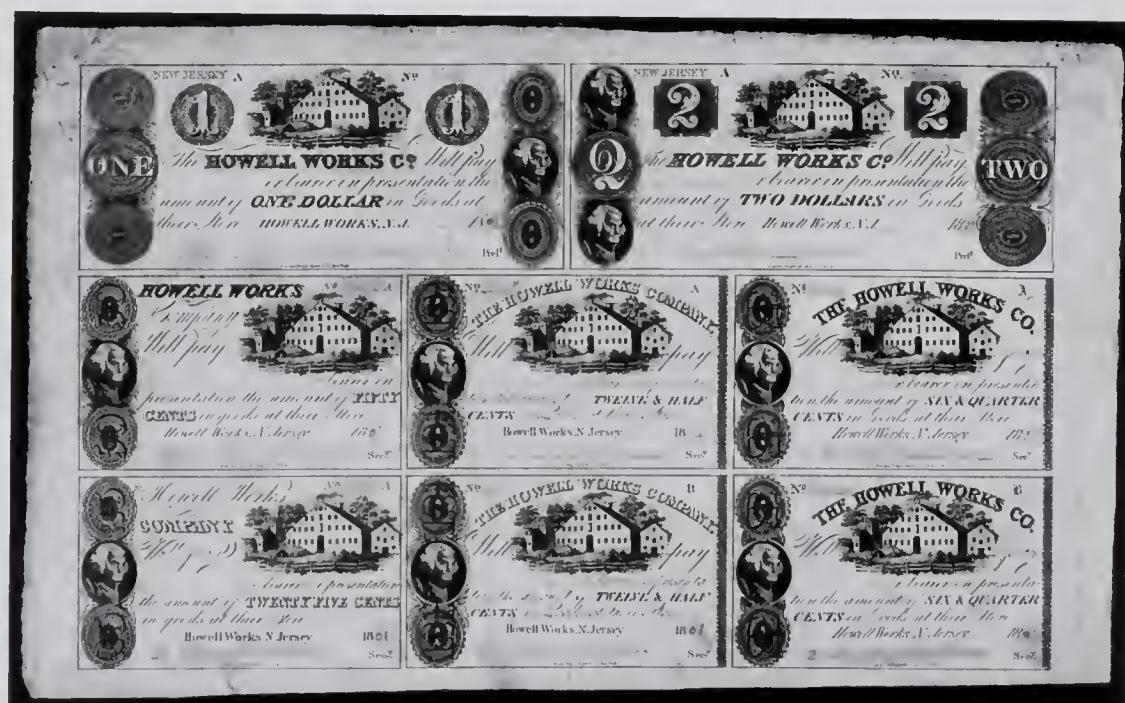 NEW JERSEY A Nº
1 1
ONE
The HOWELL WORKS Cº Will pay
bearer on presentation the
amount of ONE DOLLAR in Goods at
their Store HOWELL WORKS, N.J. 18
Presᵗ
NEW JERSEY A Nº
2 2
2 TWO
The HOWELL WORKS Cº Will pay
bearer on presentation the
amount of TWO DOLLARS in Goods
at their Store Howell Works, N.J. 18
Presᵗ
Nº A
HOWELL WORKS
Company
Will pay
bearer on
presentation the amount of FIFTY
CENTS in goods at their Store
Howell Works, N. Jersey 18
Secʸ
Nº A
THE HOWELL WORKS COMPANY
Will pay
TWELVE & HALF
CENTS
Howell Works, N. Jersey 18
Secʸ
Nº A
THE HOWELL WORKS CO.
Will
bearer on presenta-
tion the amount of SIX & QUARTER
CENTS in Goods at their Store
Howell Works, N. Jersey 18
Secʸ
Nº A
Howell Works
COMPANY
Will pay
bearer on presentation
the amount of TWENTY FIVE CENTS
in goods at their Store
Howell Works N Jersey 18
Secʸ
Nº B
THE HOWELL WORKS COMPANY
Will pay
TWELVE & HALF
CENTS
Howell Works, N. Jersey 18
Secʸ
Nº B
THE HOWELL WORKS CO.
Will
bearer on presenta-
tion the amount of SIX & QUARTER
CENTS in Goods at their Store
Howell Works, N. Jersey 18
2 Secʸ